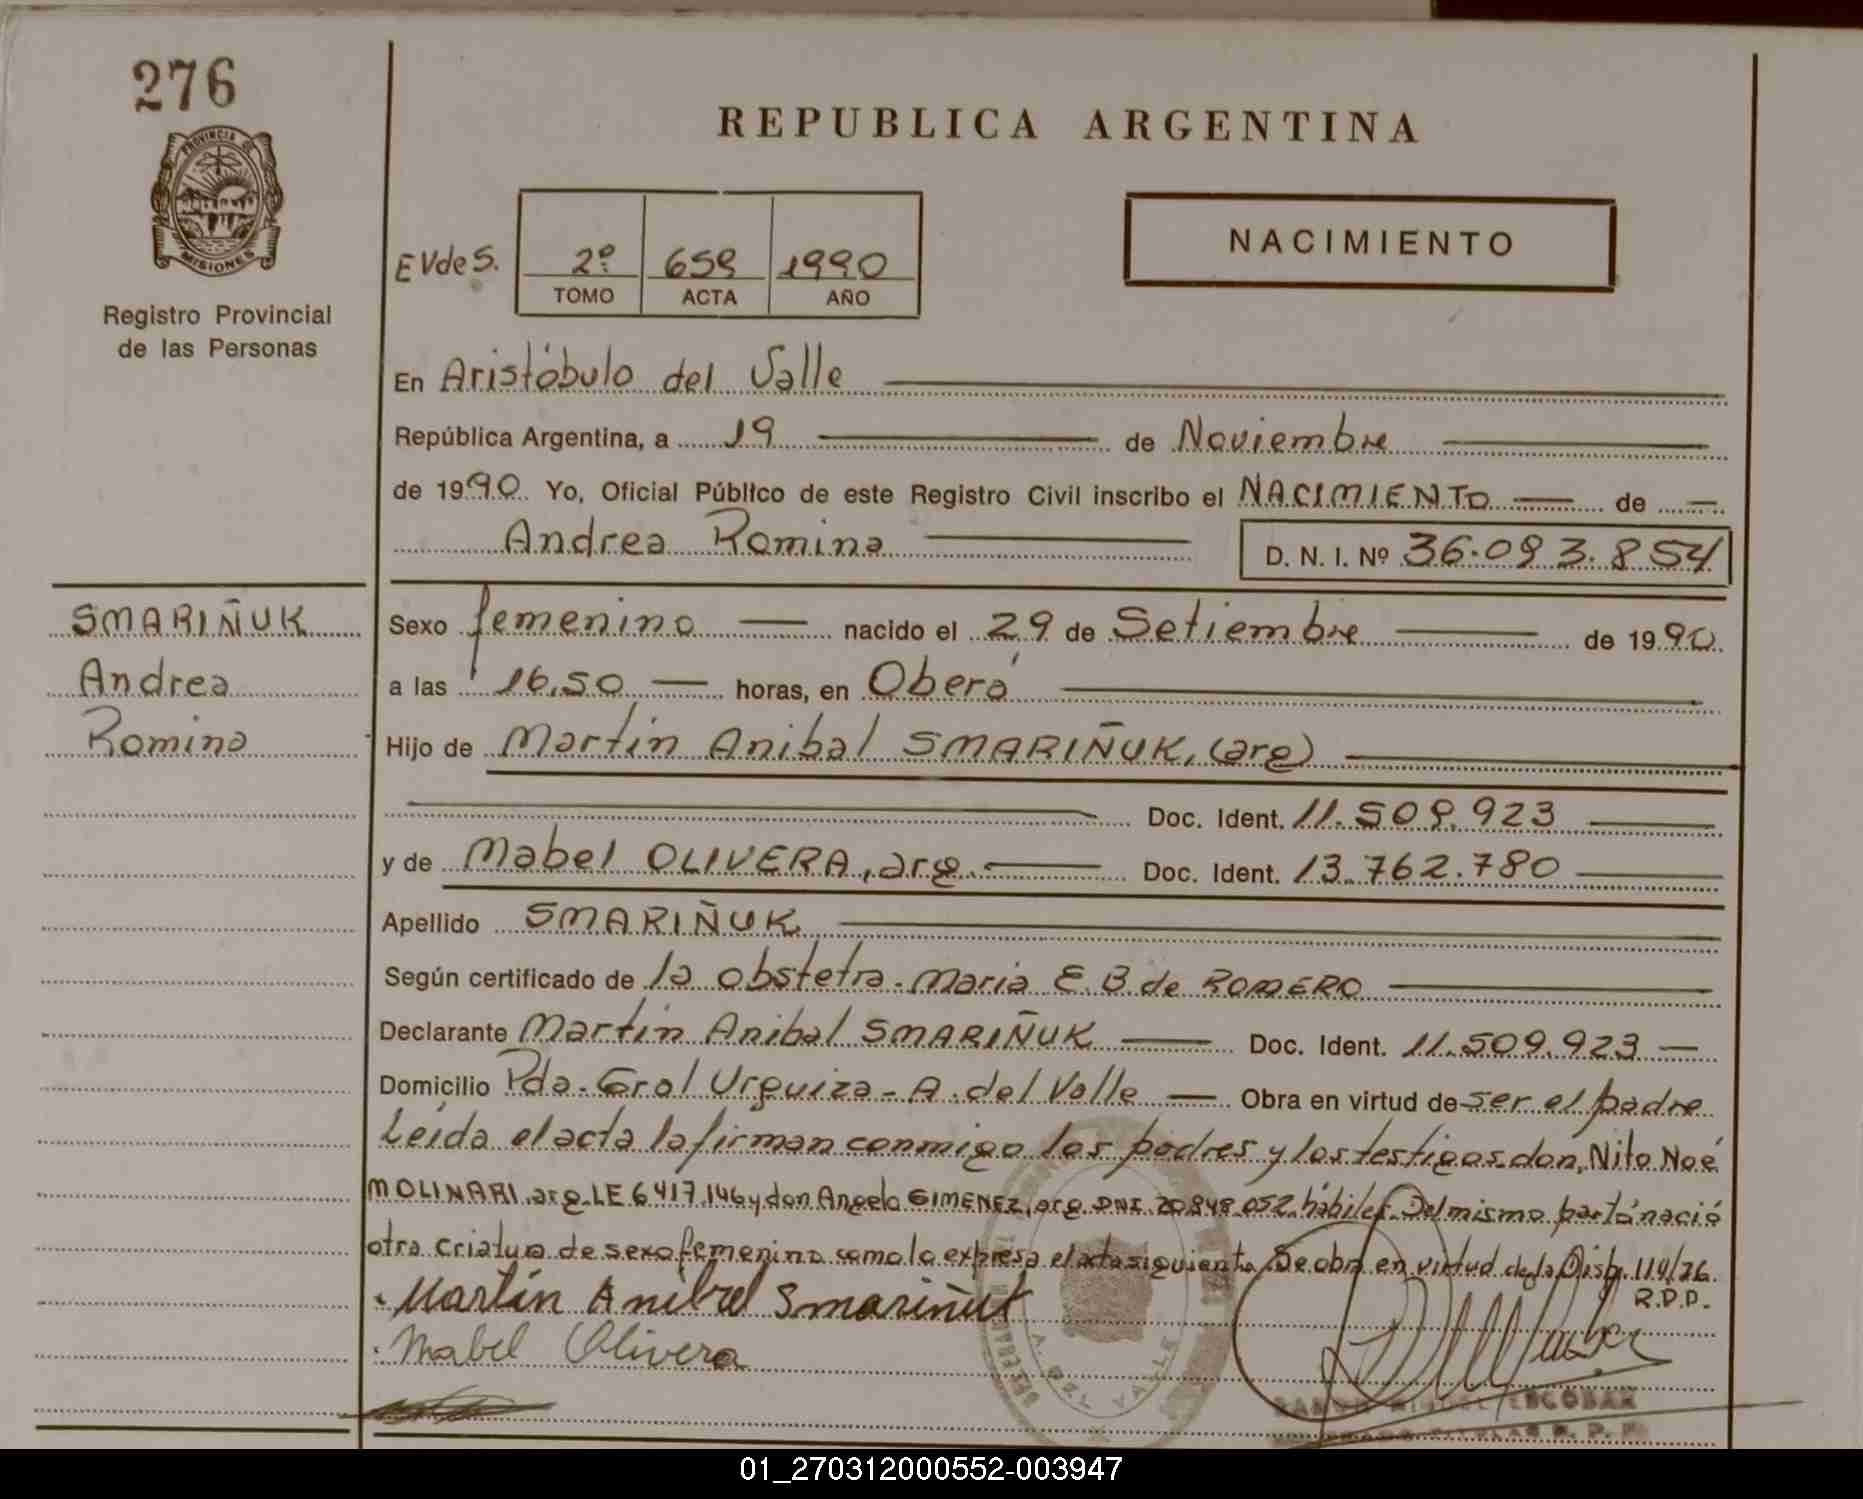 276
PROVINCIA DE
MISIONES
Registro Provincial
de las Personas
REPUBLICA ARGENTINA
EVdeS. 2º 659 1990
TOMO ACTA AÑO
NACIMIENTO
En Aristóbulo del Valle
República Argentina, a 19 de Noviembre
de 1990. Yo, Oficial Público de este Registro Civil inscribo el NACIMIENTO de
Andrea Romina D. N. I. Nº 36.093.854
SMARIÑUK
Andrea
Romina
Sexo femenino nacido el 29 de Setiembre de 1990.
a las 16,50 horas, en Oberá
Hijo de Martín Anibal SMARIÑUK, (arg)
Doc. Ident. 11.509.923
y de Mabel OLIVERA, arg. Doc. Ident. 13.762.780
Apellido SMARIÑUK
Según certificado de la obstetra. Maria E. B. de ROMERO
Declarante Martín Anibal SMARIÑUK Doc. Ident. 11.509.923
Domicilio Pda. Gral Urquiza - A. del Valle Obra en virtud de ser el padre
Leída el acta la firman conmigo los padres y los testigos don, Nito Noé
MOLINARI, arg. LE 6.417.146 y don Angelo GIMENEZ, arg. DNI 20.848.052 hábiles. Del mismo parto nació
otra criatura de sexo femenino como lo expresa el acta siguiente. Se obra en virtud de la Disp. 114/76
R.D.P.
Martín Anibal Smariñuk
Mabel Olivera
A. DEL VALLE
ESCOBAR
01_270312000552-003947